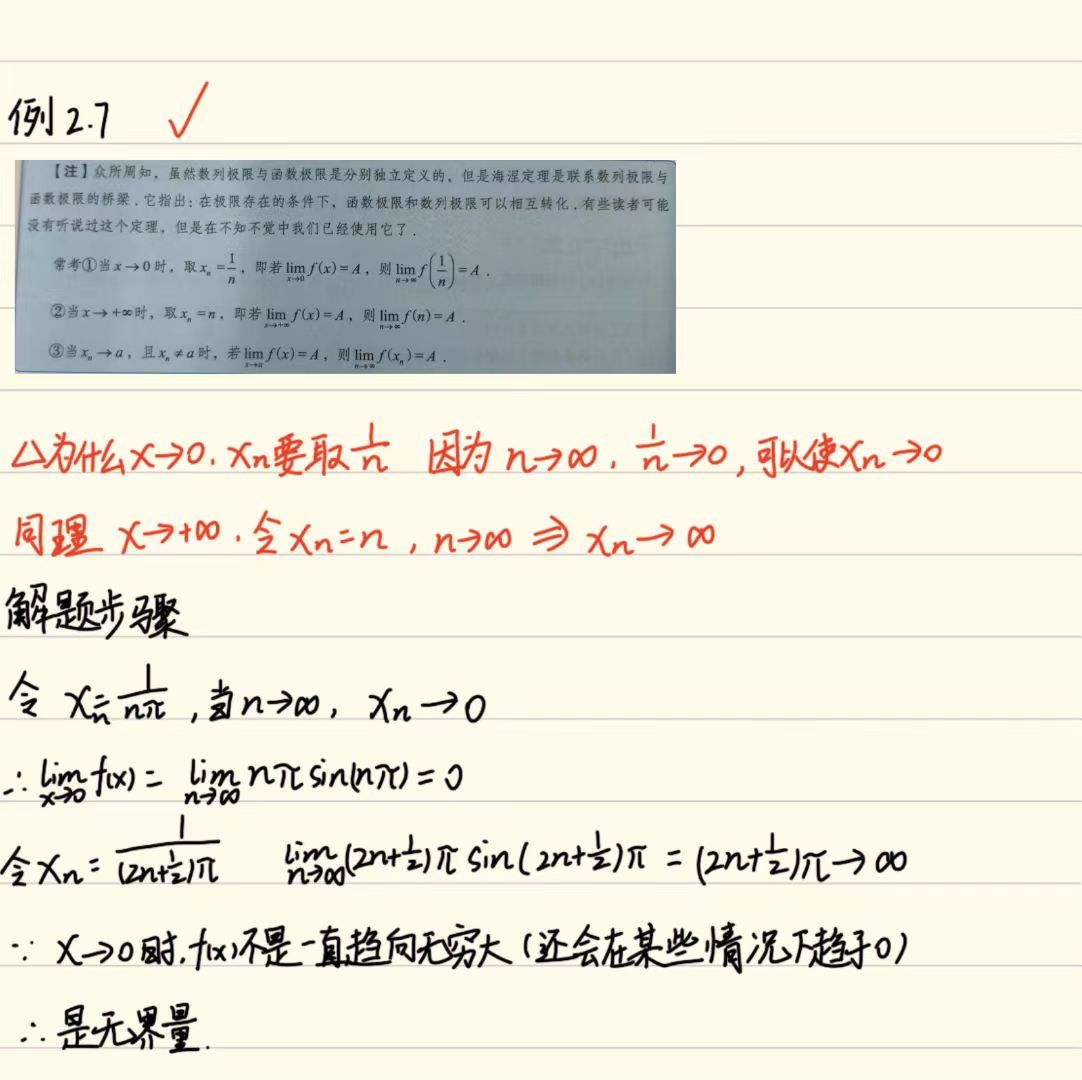 例2.7 ✓
【注】众所周知，虽然数列极限与函数极限是分别独立定义的，但是海涅定理是联系数列极限与
函数极限的桥梁．它指出：在极限存在的条件下，函数极限和数列极限可以相互转化．有些读者可能
没有听说过这个定理，但是在不知不觉中我们已经使用它了．
常考①当x→0时，取xₙ=1/n，即若lim_{x→0} f(x)=A，则lim_{n→∞} f(1/n)=A．
②当x→+∞时，取xₙ=n，即若lim_{x→+∞} f(x)=A，则lim_{n→∞} f(n)=A．
③当xₙ→a，且xₙ≠a时，若lim_{x→a} f(x)=A，则lim_{n→∞} f(xₙ)=A．
△为什么x→0，xₙ要取1/n 因为n→∞，1/n→0，可以使xₙ→0
同理 x→+∞，令xₙ=n，n→∞ ⇒ xₙ→∞
解题步骤
令 xₙ=1/(nπ)，当n→∞，xₙ→0
∴ lim_{x→0} f(x) = lim_{n→∞} nπ sin(nπ) = 0
令xₙ=1/((2n+1/2)π) lim_{n→∞} (2n+1/2)π sin(2n+1/2)π = (2n+1/2)π→∞
∵ x→0时，f(x)不是一直趋向无穷大（还会在某些情况下趋于0）
∴ 是无界量．